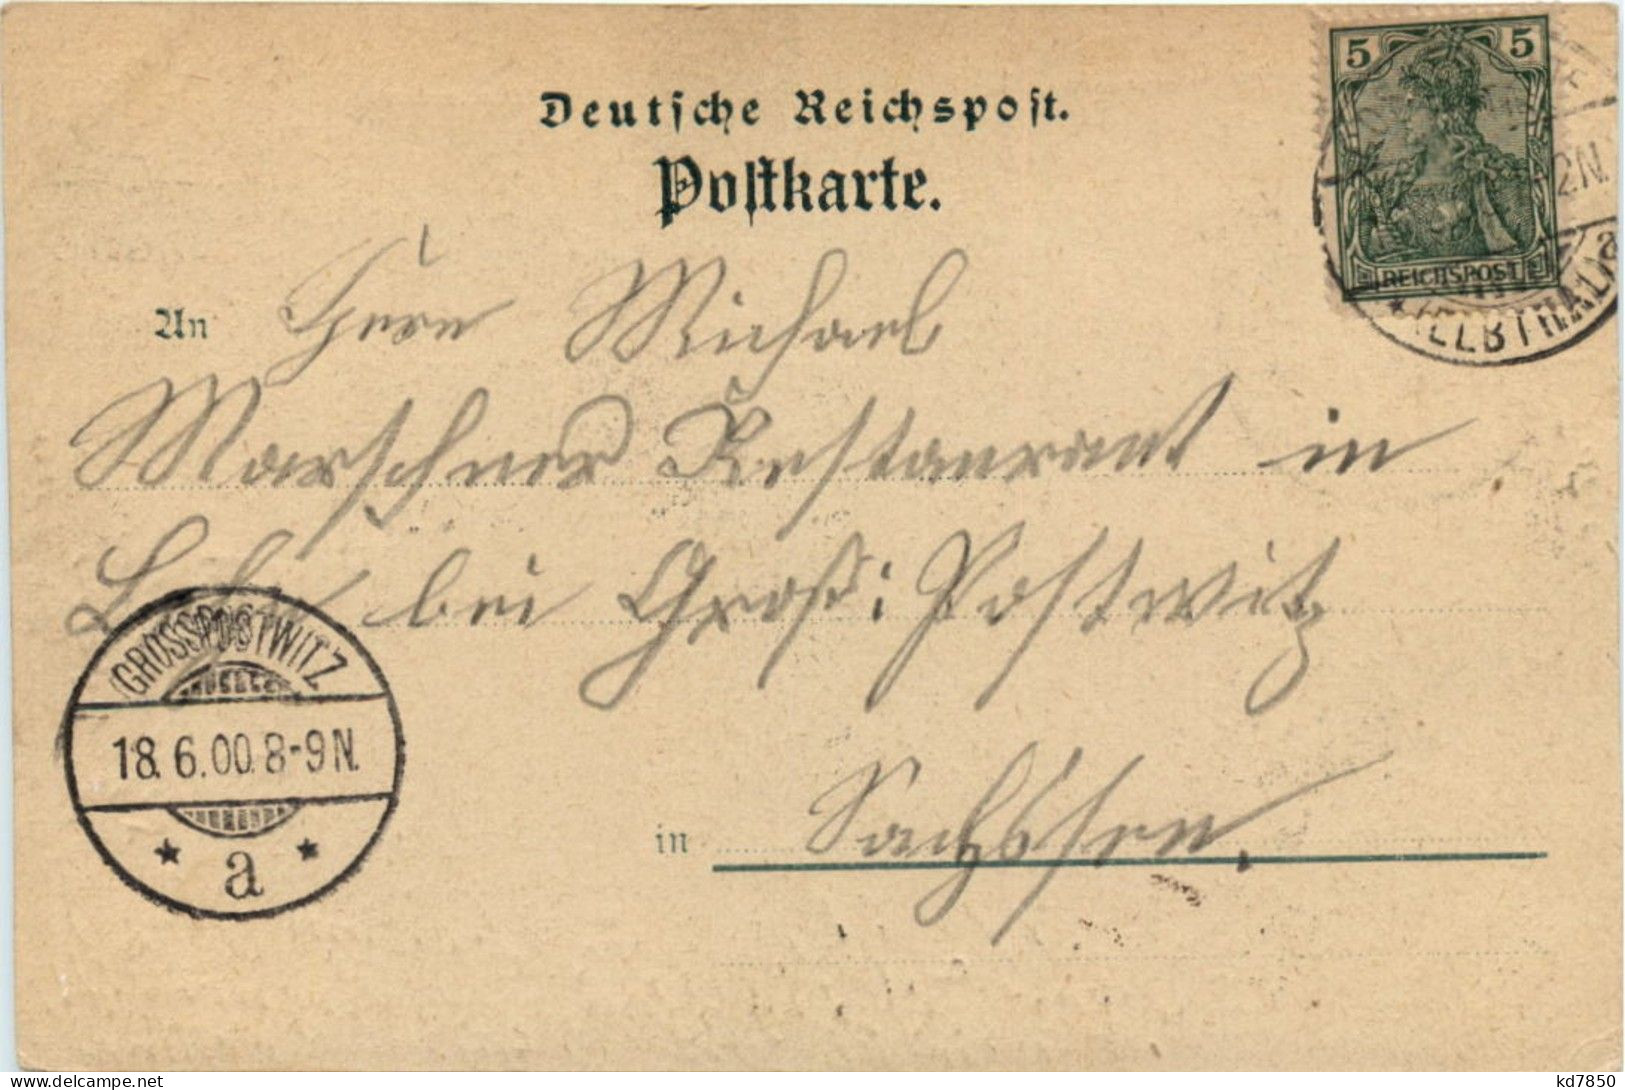 Deutsche Reichspost.
Postkarte.
5 5
REICHSPOST
2N.
(ELBTHAL)
a
An Herrn Michael
Marschner Restaurant in
bei Groß: Postwitz
GROSSPOSTWITZ
18.6.00.8-9N.
* a *
in Sachssen.
kd7850